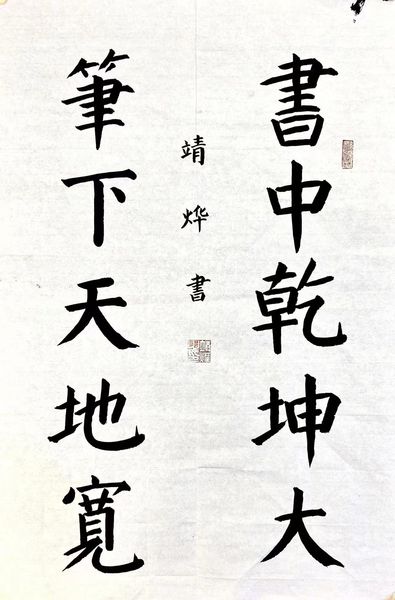 書中乾坤大
筆下天地寬
靖烨書